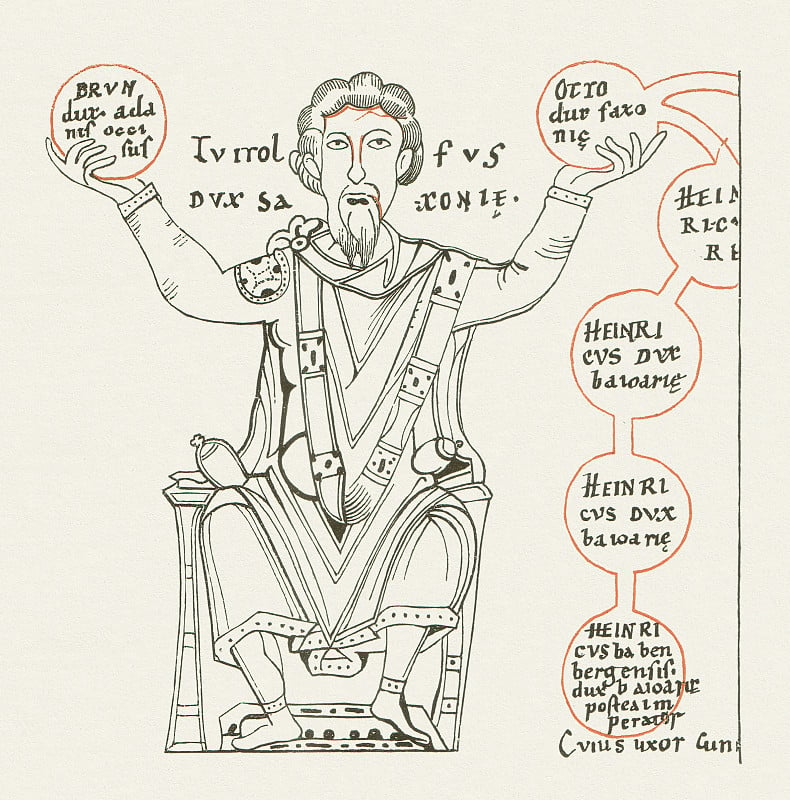 BRVN
dux. a dа
nis occi
sus
OTTO
dux saxo
nię
LVITOL FVS
DVX SA XONIĘ.
HEIN
RIC
RE
HEINRI
CVS DVX
baioarię
HEINRI
CVS DVX
baioarię
HEINRI
CVS baben
bergensis.
dux baioarię
postea im
perator
Cuius uxor Cun